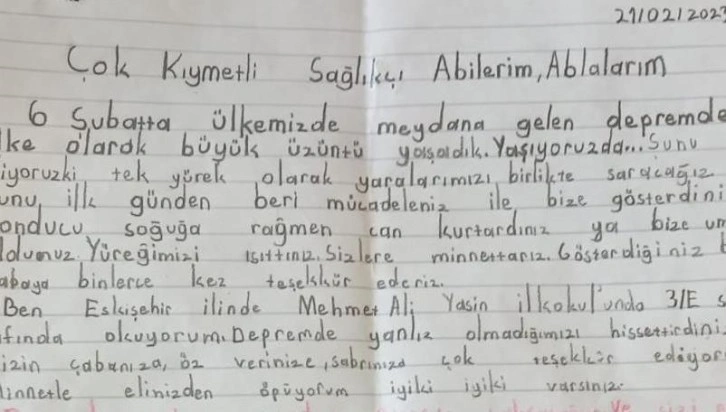 21/02/2023
Çok Kıymetli Sağlıkçı Abilerim, Ablalarım
6 Şubatta ülkemizde meydana gelen depremde
lke olarak büyük üzüntü yaşadık. Yaşıyoruzda... Şunu
iyoruzki tek yürek olarak yaralarımızı birlikte saracağız
unu ilk günden beri mücadeleniz ile bize gösterdini
onducu soğuğa rağmen can kurtardınız ya bize um
ldunuz. Yüreğimizi ısıttınız. Sizlere minnettarız. Gösterdiğiniz
abaya binlerce kez teşekkür ederiz.
Ben Eskişehir ilinde Mehmet Ali Yasin ilkokul'unda 3/E s
fında okuyorum. Depremde yanlız olmadığımızı hissettirdini
izin çabanıza, öz verinize, sabrınıza çok teşekkür ediyor
innetle elinizden öpüyorum iyiki iyiki varsınız.